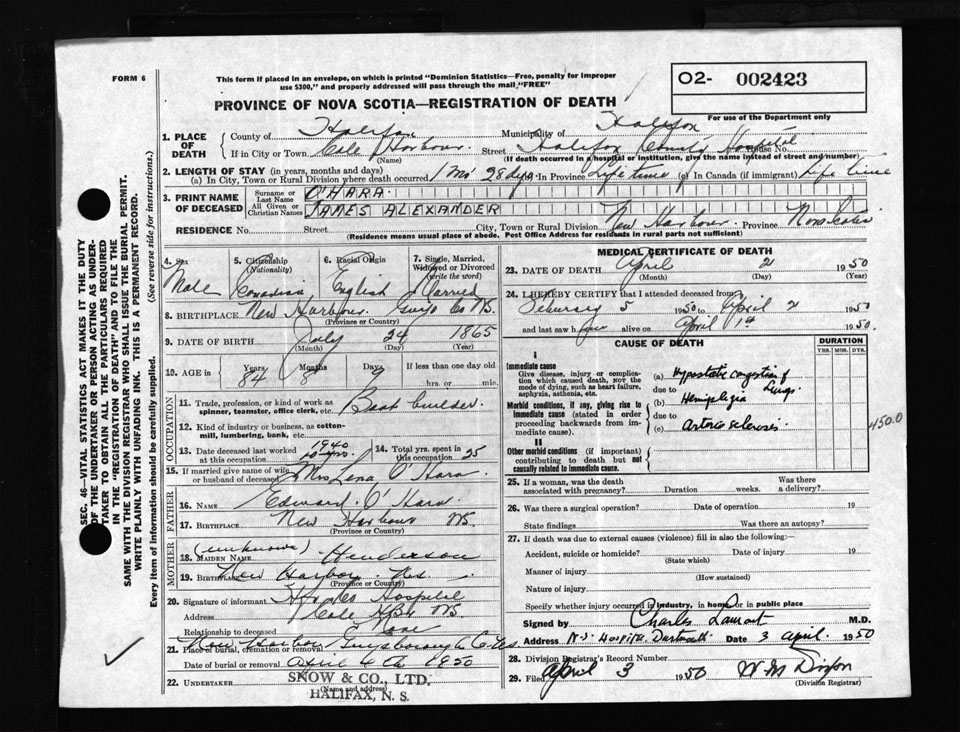 FORM 6
This form if placed in an envelope, on which is printed "Dominion Statistics—Free, penalty for improper
use $300," and properly addressed will pass through the mail "FREE"
O2- 002423
PROVINCE OF NOVA SCOTIA—REGISTRATION OF DEATH
For use of the Department only
1. PLACE OF DEATH
County of Halifax Municipality of Halifax
If in City or Town Cole Harbour Street Halifax County Hospital
(Name) (If death occurred in a hospital or institution, give the name instead of street and number)
2. LENGTH OF STAY (in years, months and days)
(a) In City, Town or Rural Division where death occurred 1 Mo 28 dys In Province Life time (c) In Canada (if immigrant) Life time
3. PRINT NAME OF DECEASED
Surname or Last Name O'HARA
All Given or Christian Names JAMES ALEXANDER
RESIDENCE No. Street City, Town or Rural Division New Harbour Province Nova Scotia
(Residence means usual place of abode. Post Office Address for residents in rural parts not sufficient)
4. Sex Male
5. Citizenship (Nationality) Canadian
6. Racial Origin English
7. Single, Married, Widowed or Divorced (write the word) Married
8. BIRTHPLACE New Harbour Guys Co NS.
(Province or Country)
9. DATE OF BIRTH July 24 1865
(Month) (Day) (Year)
10. AGE in Years 84 Months 8 Days 9 If less than one day old
hrs. or min.
OCCUPATION
11. Trade, profession, or kind of work as
spinner, teamster, office clerk, etc. Boat builder.
12. Kind of industry or business, as cotton-
mill, lumbering, bank, etc.
13. Date deceased last worked at this occupation 1940 10 yrs.
14. Total yrs. spent in this occupation 25
15. If married give name of wife or husband of deceased Mrs Lena O'Hara
FATHER
16. NAME Edward O'Hara
17. BIRTHPLACE New Harbour NS.
MOTHER
18. MAIDEN NAME (unknown) Henderson
19. BIRTHPLACE New Harbor N.S.
(Province or Country)
20. Signature of informant Hfx Co Hospital
Address Cole Hbr NS.
Relationship to deceased
21. Place of burial, cremation or removal New Harbor Guysborough Co N.S.
Date of burial or removal April 4th 1950
22. UNDERTAKER SNOW & CO., LTD.
(Name and address)
HALIFAX, N. S.
MEDICAL CERTIFICATE OF DEATH
23. DATE OF DEATH April 2 1950
(Month) (Day)
24. I HEREBY CERTIFY that I attended deceased from
February 5 1950 to April 2 1950
and last saw him alive on April 1st 1950.
CAUSE OF DEATH
DURATION
YRS. MOS. DYS.
I
Immediate cause
Give disease, injury or compli-
cation which caused death, not the
mode of dying, such as heart failure,
asphyxia, asthenia, etc.
(a) Hypostatic congestion of Lungs
due to
(b) Hemiplegia
Morbid conditions, if any, giving rise to
immediate cause (stated in order
proceeding backwards from im-
mediate cause).
due to
(c) Arterio sclerosis
450.0
II
Other morbid conditions (if important)
contributing to death but not
causally related to immediate cause.
25. If a woman, was the death associated with pregnancy? Duration weeks. Was there a delivery?
26. Was there a surgical operation? Date of operation 19
State findings Was there an autopsy?
27. If death was due to external causes (violence) fill in also the following:—
Accident, suicide or homicide? Date of injury 19
(State which)
Manner of injury
(How sustained)
Nature of injury
Specify whether injury occurred in industry, in home or in public place
Signed by Charles Lamont M.D.
Address N.S. Hospital Dartmouth Date 3 April. 1950
28. Division Registrar's Record Number
29. Filed April 3 1950 W M Dixon
(Division Registrar)
SEC. 46—VITAL STATISTICS ACT MAKES IT THE DUTY
OF THE UNDERTAKER OR PERSON ACTING AS UNDER-
TAKER TO OBTAIN ALL THE PARTICULARS REQUIRED
IN THE "REGISTRATION OF DEATH" AND TO FILE THE
SAME WITH THE DIVISION REGISTRAR WHO SHALL ISSUE THE BURIAL PERMIT.
WRITE PLAINLY WITH UNFADING INK. THIS IS A PERMANENT RECORD.
Every item of information should be carefully supplied. (See reverse side for instructions.)